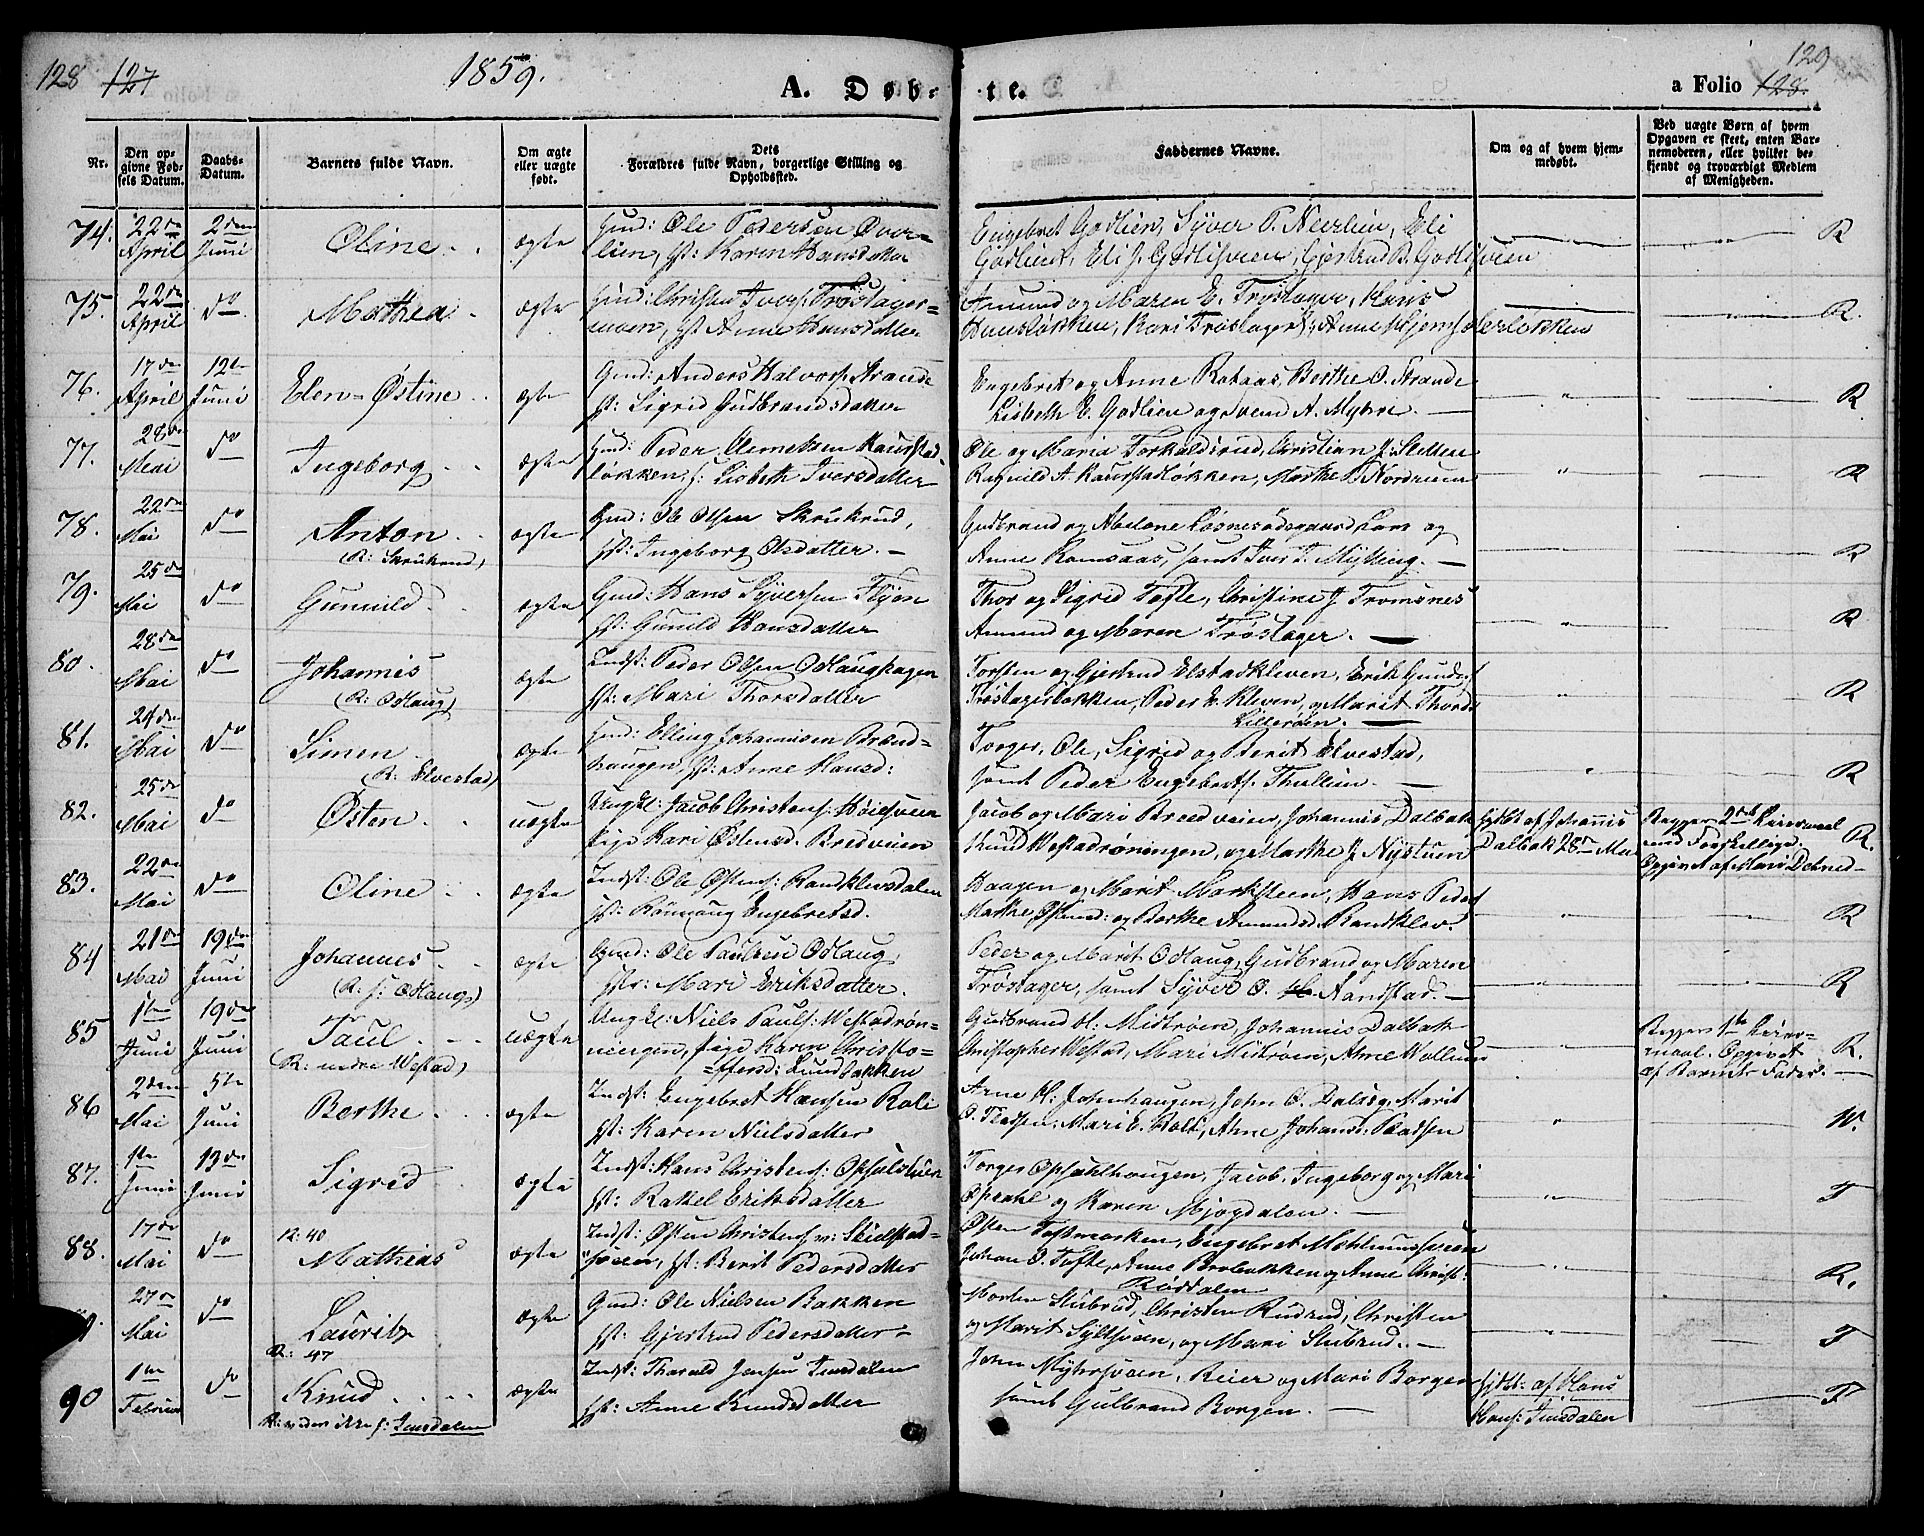 128 127 1859.
A. Døb- te.
129
a Folio 128.
Nr.
Den opgivne Fødsels Datum.
Daabs-Datum.
Barnets fulde Navn.
Om ægte eller uægte født.
Dets Forældres fulde Navn, borgerlige Stilling og Opholdssted.
Faddernes Navne.
Om og af hvem hjemmedøbt.
Ved uægte Børn af hvem Opgaven er skeet, enten Barnemoderen, eller hvilket bekjendt og troværdigt Medlem af Menigheden.
74. 22de April 2den Juni Oline ægte Gmd: Ole Pedersen Over-
lien, hst: Karen Hansdatter
Engebret Godlien, Syver P. Neerlien, Eli
Godliens, Eli J. Godlisveen, Gjertrud B. Godlisveen R
75. 22de April do Mathea ægte Gmd: Christen Ivers. Trøstager-
moen, hst Anne Hansdatter
Amund og Maren E. Trøstager,
Kari Trøstager, Anne R.
76. 17de April 12te Juni Elen-Østine ægte Gmd: Anders Halvors. Strande
hst: Sigrid Gudbrandsdatter
Engebret og Anne Rokaas, Berthe O. Strande
Lisbeth E. Godlien og Svend A. Myhre. R
77. 28de Mai do Ingeborg ægte Gmd: Peder Clemetsen Kaurstad-
løkken, h: Lisbeth Iversdatter
Ole og Maria Torkaldsrud, Christian J. Sletten
Ragnild A. Kaurstadløkken, Marthe P Nordrum R
78. 22de Mai do Anton ægte Gmd: Ole Olsen Skrukrud,
(R: Skrukrud) hst: Ingeborg Olsdatter.
Gudbrand og Abelone Losnesødegaard, Lars og
Anne Ramsaas, samt Iver T. Mytting. R
79. 25de Mai do Gunnild ægte Gmd: Hans Syversen Flyen
hst: Gunild Hansdatter
Thor og Sigrid Tofte, Christine J Tromsnes
Amund og Maren Trøstager. R
80. 28de Mai do Johannis ægte Indst: Peder Olsen Odlaughagen
(R: Odlaug) hst: Mari Thorsdatter
Torsten og Gjertrud Elstadkleven, Erik
Trøstagerbakken, Peder E. Kleven, og Marit Thords
Lillerøen. R
81. 24de Mai do Simen ægte Gmd: Elling Johannisen Brænd-
(R: Elvestad) haugen, hst: Anne Hansd:
Torger, Ole, Sigrid og Berit Elvestad,
samt Peder Engebrets. Thullien. R
82. 25de Mai do Østen uægte Ungkl: Jacob Christens: Høilsveen
Pige Kari Østensd. Bredveien
Jacob og Mari Bredveien, Johannis Dalbak
Knud Westadrøningen, og Marthe J Nystuen
hjdbt af Johannis
Dalbak 28de Mai
Begges 2det Leiermaal
med Forskellige.
Opgivet af R.
83. 22de Mai do Oline ægte Indst: Ole Østens: Randklevsdalen
hst: Rønnaug Engebretsd.
Haagen og Marit Marksteen, Hans Peders
Marthe og Berthe Amundsd Randklev. R
84 21de Mai 19de Juni Johannes ægte Gmd: Ole Paulsen Odlaug,
(R: s: Odlaug) hst: Mari Eriksdatter.
Peder og Marit Odlaug, Gudbrand og Maren
Trøstager, samt Syver O. Aandstad. R
85 1te Juni 19de Juni Paul uægte Ungkl: Niels Pauls: Westadrøn-
(R: nedre Westad) ningen, Pige Karen Christo-
-ffersd: Lundbakken
Gudbrand Midtrøen, Johannis Dalbak
Christopher Westad, Mari Midtrøen, Anne
Begges 1te Leier-
maal. Opgivet
af Barnets Fader. R.
86 2den Mai 5te Juni Berthe ægte Indst: Engebret Hansen Roli
hst: Karen Nielsdatter
Arne H. Johnhaugen, John O. Dalseg, Marit
O. Pladsen, Mari E. Holt, Anne Johansd: Pladsen W.
87. 1te Juni 13de Juni Sigrid ægte Indst: Hans Christens: Opsalstuen
hst: Rakel Eriksdatter
Torger Opsahlhaugen, Jacob, Ingeborg og Mari
Opsahl og Karen Mjøgdalen. T
88. 17de Mai do R: 40 Mathias ægte Indst: Østen Christens
sveen, hst: Berit Pedersdatter
Østen Toftemarken, Engebret
Johan O. Tofte, Anne Brobakken og Anne Christ:
Røddalen R.
27de Mai do Lauritz ægte Gmd: Ole Nielsen Bakken
R: 47 hst: Gjertrud Pedersdatter
Morten Stubrud, Christen Rudrud, Christen
og Marit Sylsveen, og Mari Stubrud. T
90 1te Februar do Knud ægte Indst: Tharald Jensen Imsdalen
hst: Anne Knudsdatter
Imsdalen
John Myhrsveen, Reier og Mari Borgen
samt Gulbrand Borgen.
hjdbt: af Hans
Hans: Imsdalen T